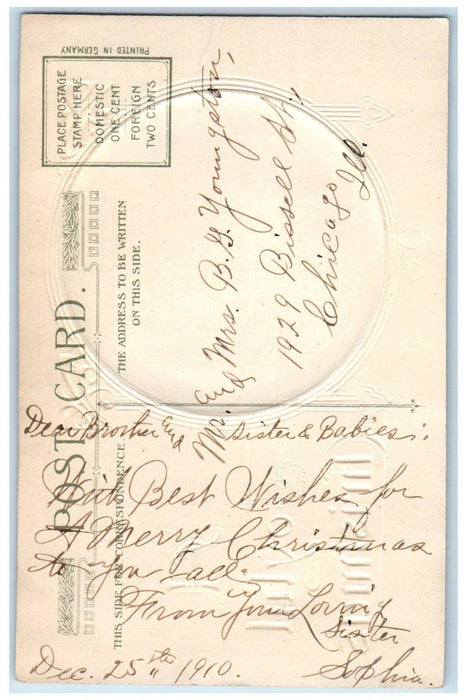 POST CARD.
THIS SIDE FOR CORRESPONDENCE.
THE ADDRESS TO BE WRITTEN
ON THIS SIDE.
PLACE POSTAGE
STAMP HERE
DOMESTIC
ONE CENT
FOREIGN
TWO CENTS
PRINTED IN GERMANY
Mr. and Mrs. B. G. Youngston,
1929 Bissell St.,
Chicago Ill.
Dear Brother and Sister & Babies:
With Best Wishes for
A Merry Christmas
to you all.
From your Loving
Sister
Sophia.
Dec. 25th 1910.